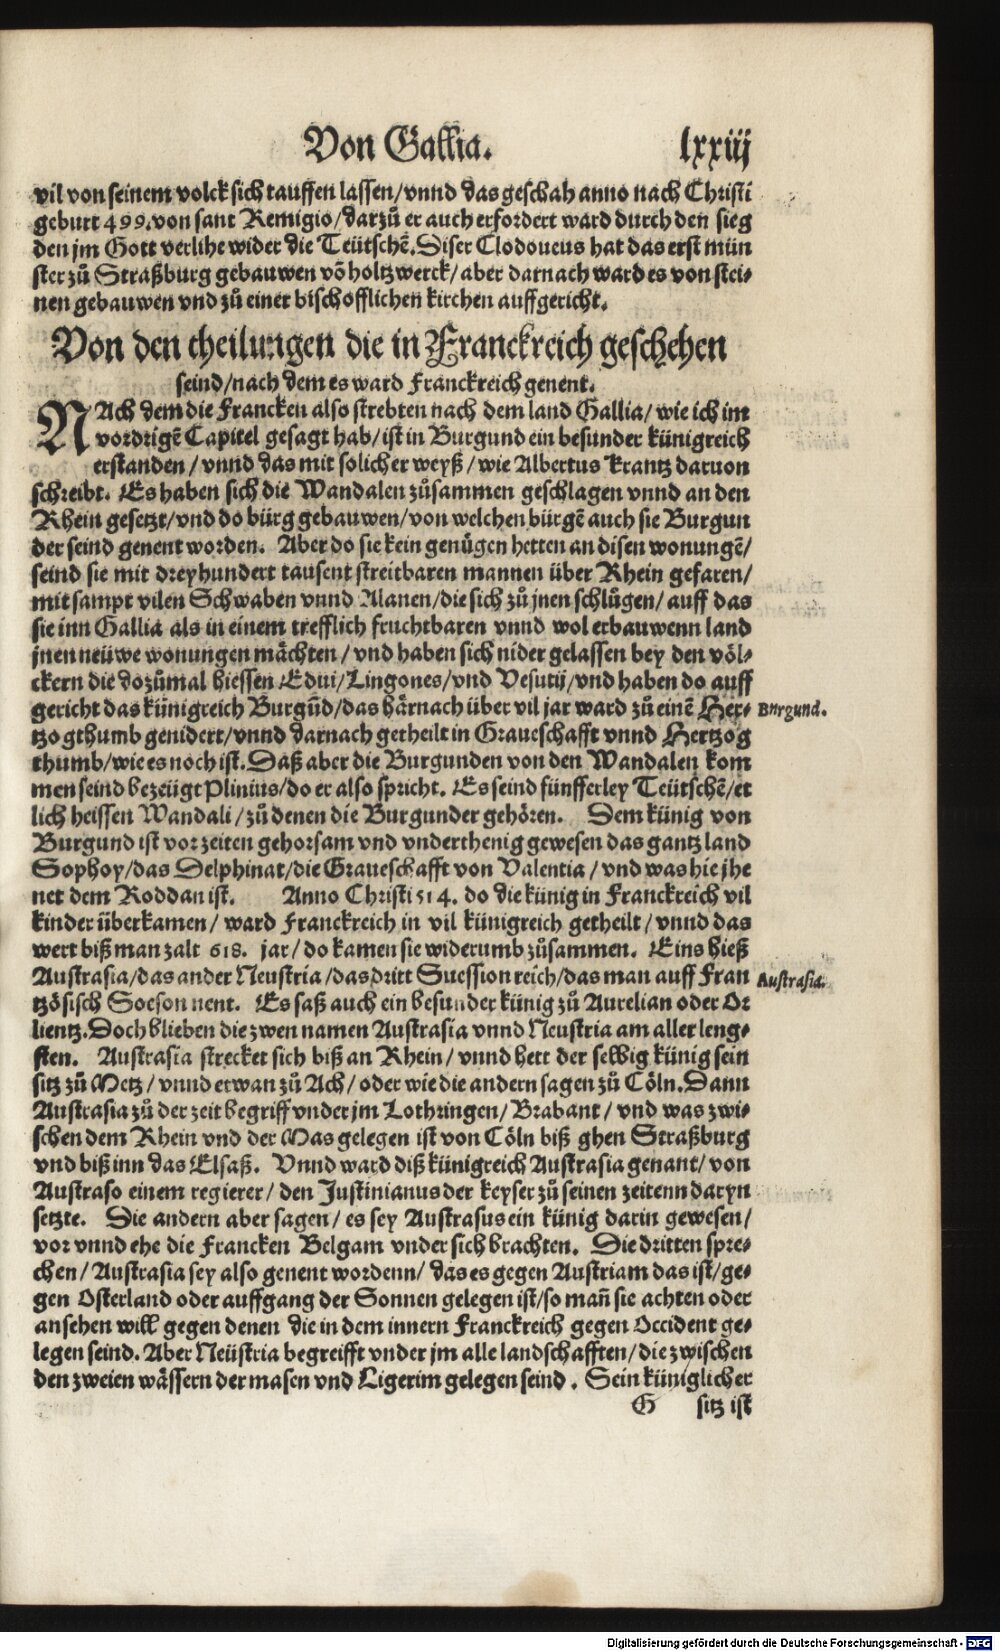 Von Gallia. lxxiij
vil von seinem volck sich tauffen lassen/vnnd das geschah anno nach Christi
geburt 499. von sant Remigio/darzů er auch erfordert ward durch den sieg
den jm Gott verlihe wider die Teütschẽ. Diser Clodoueus hat das erst mün
ster zů Straßburg gebauwen võ holtzwerck/aber darnach ward es von stei-
nen gebauwen vnd zů einer bischofflichen kirchen auffgericht.
Von den theilungen die in Franckreich geschehen
seind/nach dem es ward Franckreich genent.
NAch dem die Francken also strebten nach dem land Gallia/wie ich im
vordrigẽ Capitel gesagt hab/ist in Burgund ein besunder künigreich
erstanden/vnnd das mit solicher weyß/wie Albertus Krantz daruon
schreibt. Es haben sich die Wandalen zůsammen geschlagen vnnd an den
Rhein gesetzt/vnd do bürg gebauwen/von welchen bürgẽ auch sie Burgun
der seind genent worden. Aber do sie kein genügen hetten an disen wonungẽ/
seind sie mit dreyhundert tausent streitbaren mannen über Rhein gefaren/
mit sampt vilen Schwaben vnnd Alanen/die sich zů jnen schlůgen/auff das
sie inn Gallia als in einem trefflich fruchtbaren vnnd wol erbauwenn land
jnen neüwe wonungen mächten/vnd haben sich nider gelassen bey den völ-
ckern die dozůmal hiessen Edui/Lingones/vnd Vesutij/vnd haben do auff
gericht das künigreich Burgũd/das härnach über vil jar ward zů einẽ Her-
Burgund.
tzogthumb genidert/vnnd darnach getheilt in Graueschafft vnnd Hertzog
thumb/wie es noch ist. Daß aber die Burgunden von den Wandalen kom
men seind bezeügt Plinius/do er also spricht. Es seind fünfferley Teütschẽ/et
lich heissen Wandali/zů denen die Burgunder gehören. Dem künig von
Burgund ist vor zeiten gehorsam vnd vnderthenig gewesen das gantz land
Sophoy/das Delphinat/die Graueschafft von Valentia/vnd was hie jhe
net dem Roddan ist. Anno Christi 514. do die künig in Franckreich vil
kinder überkamen/ward Franckreich in vil künigreich getheilt/vnnd das
wert biß man zalt 618. jar/do kamen sie widerumb zůsammen. Eins hieß
Austrasia/das ander Neustria/das dritt Suession reich/das man auff Fran
Austrasia.
tzösisch Soeson nent. Es saß auch ein besunder künig zů Aurelian oder Or
lientz. Doch blieben die zwen namen Austrasia vnnd Neustria am aller leng-
sten. Austrasia strecket sich biß an Rhein/vnnd hett der selbig künig sein
sitz zů Metz/vnnd etwan zů Ach/oder wie die andern sagen zů Cöln. Dann
Austrasia zů der zeit begriff vnder jm Lothringen/Brabant/vnd was zwi-
schen dem Rhein vnd der Mas gelegen ist von Cöln biß ghen Straßburg
vnd biß inn das Elsaß. Vnnd ward diß künigreich Austrasia genant/von
Austraso einem regierer/den Justinianus der keyser zů seinen zeitenn daryn
setzte. Die andern aber sagen/es sey Austrasus ein künig darin gewesen/
vor vnnd ehe die Francken Belgam vnder sich brachten. Die dritten spre-
chen/Austrasia sey also genent wordenn/das es gegen Austriam das ist/ge-
gen Osterland oder auffgang der Sonnen gelegen ist/so mañ sie achten oder
ansehen will gegen denen die in dem innern Franckreich gegen Occident ge-
legen seind. Aber Neüstria begreifft vnder jm alle landschafften/die zwischen
den zweien wässern der masen vnd Ligerim gelegen seind. Sein küniglicher
G sitz ist
Digitalisierung gefördert durch die Deutsche Forschungsgemeinschaft - DFG